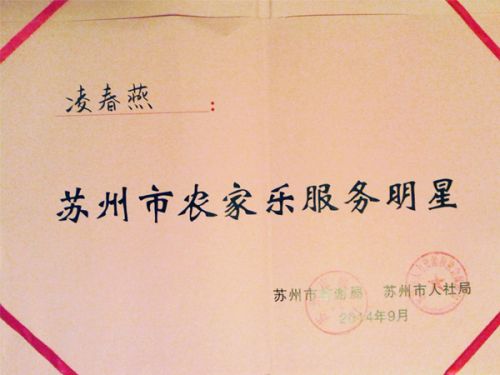 凌春燕：
苏州市农家乐服务明星
苏州市 局 苏州市人社局
2014年9月